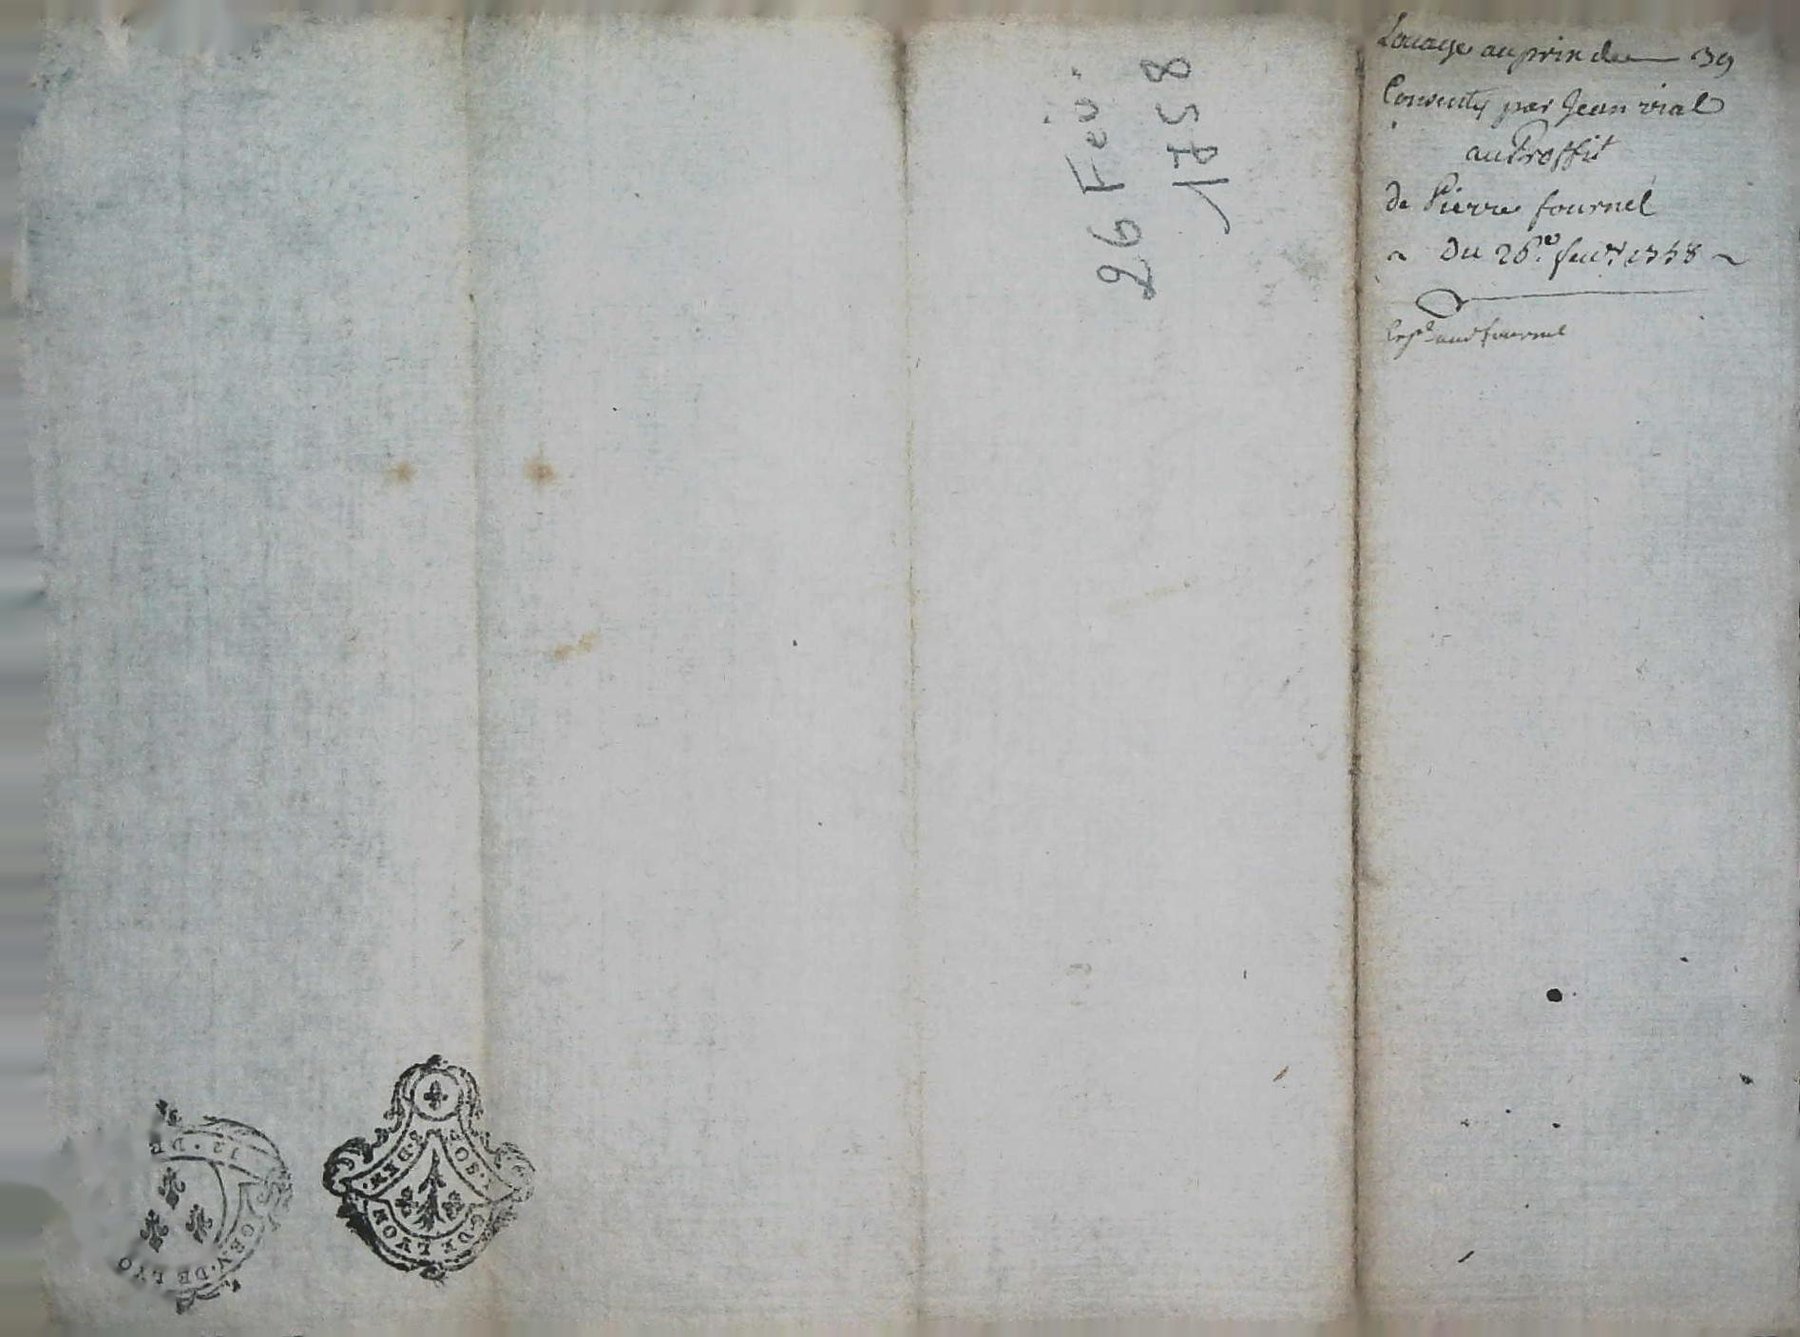 Louage au prix de 39
Consenty par Jean vial
au Proffit
de Pierre fournel
Du 26e fevr 1758
fournel
26 Fev.
1758
12 · DE
GEN · DE LYO
SOLS
DEN.
G DE LYON